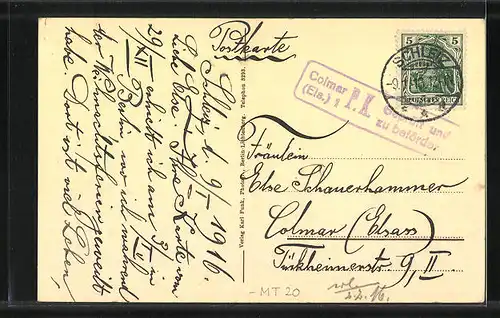 Postkarte
Schleiz, d. 9/I 1916.
Liebe Else. Ihre Karte vom
29/XII erhielt ich am 3/I in
Berlin, wo ich während
der Weihnachtsferien geweilt
habe. Dort ist viel Leben,
Verlag Karl Funk, Berlin-Lichtenberg. Telephon
5
5
DEUTSCHES REICH
SCHLEIZ
Colmar
(Els.)
P.K.
Geprüft und
zu befördern
Fräulein
Else Schauerhammer
Colmar (Elsass)
Türkheimerstr. 9, II.
-MT 20